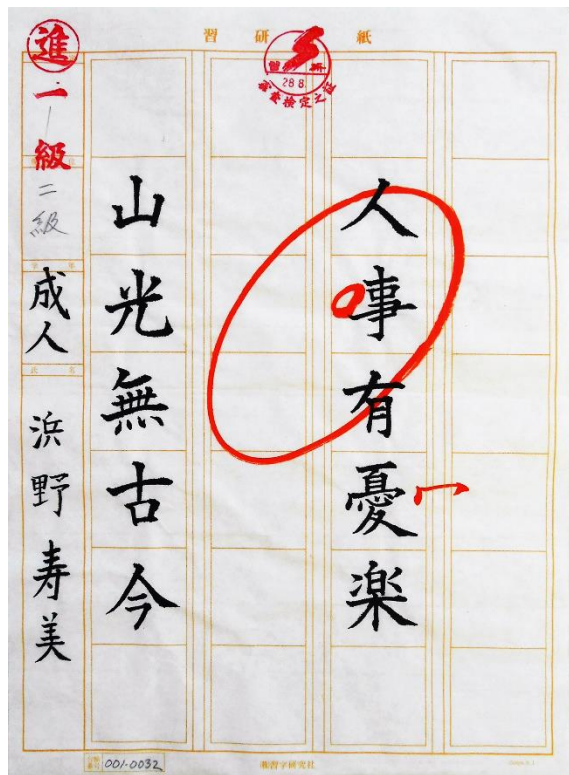 習研紙
28.8
審査検定之証
人事有憂楽
山光無古今
進
一級
二級
成人
浜野寿美
001-0032
㈱習字研究社